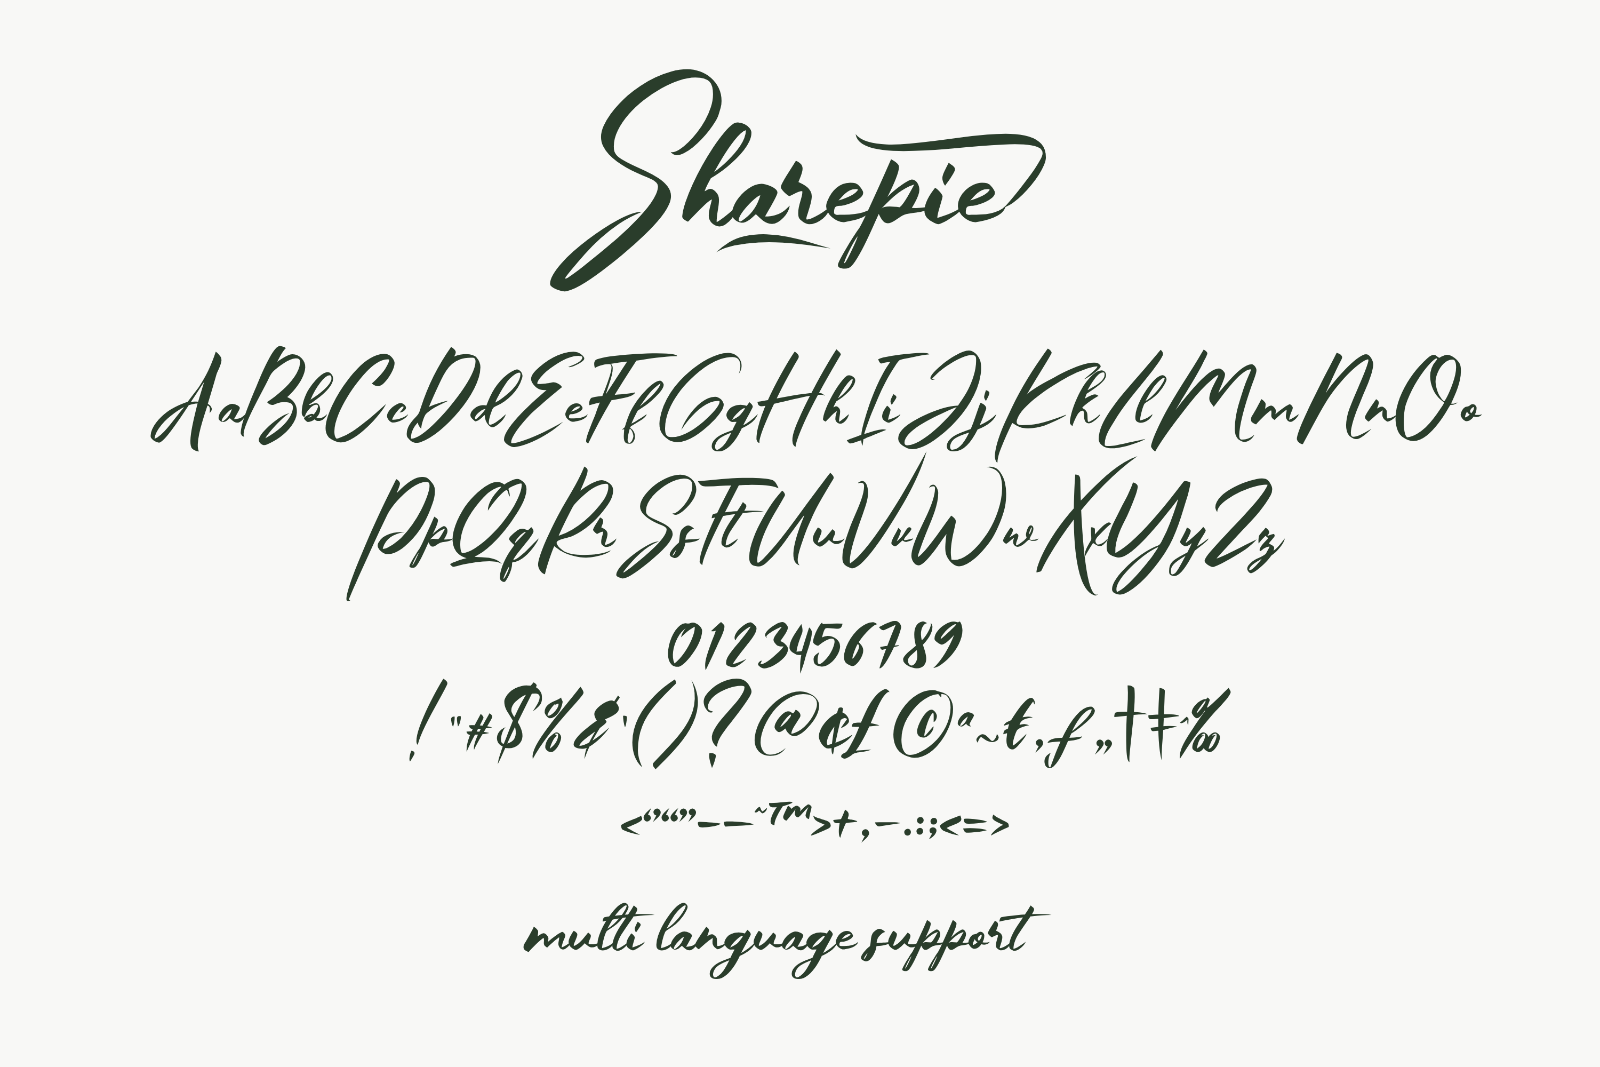 Sharepie
AaBbCcDdEeFfGgHhIiJjKkLlMmNnOo
PpQqRrSsTtUuVvWwXxYyZz
0123456789
!"#$%&'()?@¢£©ª~€,ƒ„†‡ˆ‰
<‘’“”–—˜™>+,-.:;<=>
multi language support